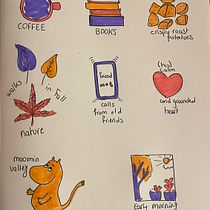 COFFEE
BOOKS
crispy roast
potatoes
walks
in fall
nature
friend
calls
from old
friends
(his)
calm
and grounded
heart
moomin
valley
Early morning